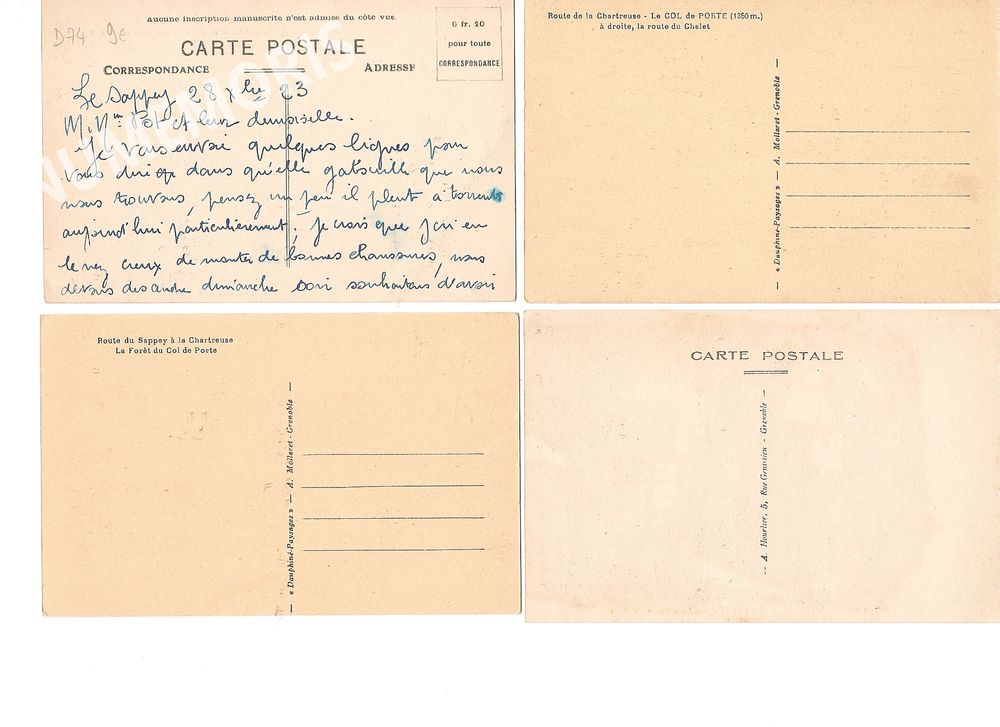 Aucune inscription manuscrite n'est admise du côté vue
D74 9€
CARTE POSTALE
0 fr. 10
pour toute
CORRESPONDANCE
CORRESPONDANCE
ADRESSE
NUMEMORIS
Le Sappey 28 Xbre 23
M. Mme et leur demoiselle.
Je vous envoi quelques lignes pour
vous dire dans qu'elle gabouille que nous
nous trouvons, pensez un peu il pleut a torrents
aujourd'hui particulièrement, je crois que j'ai eu
le nez creux de monter de bonnes chaussures, nous
devons descendre dimanche soir souhaitons d'avoir
Route de la Chartreuse - Le COL de PORTE (1350 m.)
à droite, la route du Chalet
« Dauphiné-Paysages » — A. Mollaret - Grenoble —
Route du Sappey à la Chartreuse
La Forêt du Col de Porte
« Dauphiné-Paysages » — A. Mollaret - Grenoble —
CARTE POSTALE
-- A Hourlier, 5, Rue - Grenoble —